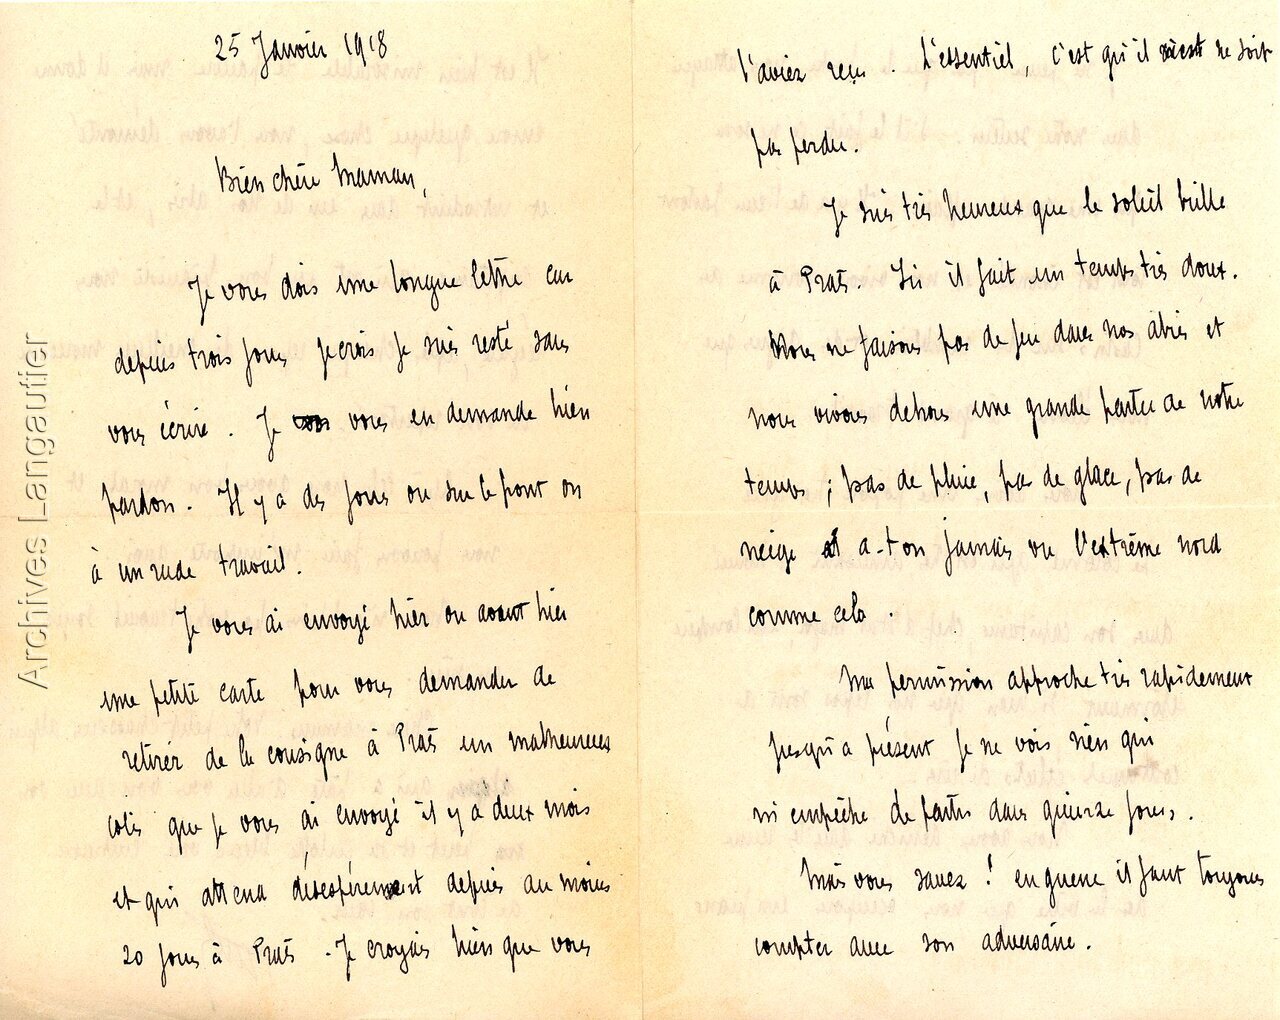 25 Janvier 1918
Bien chère Maman,
Je vous dois une longue lettre car
depuis trois jours je crois je suis resté sans
vous écrire. Je vous en demande bien
pardon. Il y a des jours où sur le front on
à un rude travail.
Je vous ai envoyé hier ou avant hier
une petite carte pour vous demander de
retirer de la consigne à Prats un malheureux
colis que je vous ai envoyé il y a deux mois
et qui attend désespérement depuis au moins
20 jours à Prats. Je croyais bien que vous
l'aviez reçu. L'essentiel, c'est qu'il ne soit
pas perdu.
Je suis très heureux que le soleil brille
à Prats. Ici il fait un temps très doux.
Nous ne faisons pas de feu dans nos abris et
nous vivons dehors une grande partie de notre
temps ; pas de pluie, pas de glace, pas de
neige a-t-on jamais vu l'extrême nord
comme cela.
Ma permission approche très rapidement
jusqu'à présent je ne vois rien qui
m'empêche de partir dans quinze jours.
Mais vous savez ! en guerre il faut toujours
compter avec son adversaire.
Archives Langautier